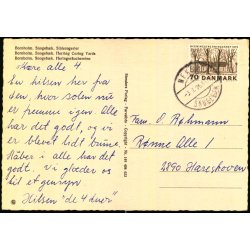 Bornholm. Snogebæk. Silderøgerier
Bornholm. Snogebæk. Herring Curing Yards
Bornholm. Snogebæk. Heringsräuchereien
Kære alle 4
En hilsen her fra
den, hvor solen nu
er fremme igen. Alle
har det godt, og vi
er blevet lidt brune.
Håber i alle har det
godt. Vi glæder os
til et gensyn
Hilsen "de 4 øver"
70 DANMARK
Fam. O. Rohmann
Rønne Alle 1
2890 Hareskoven